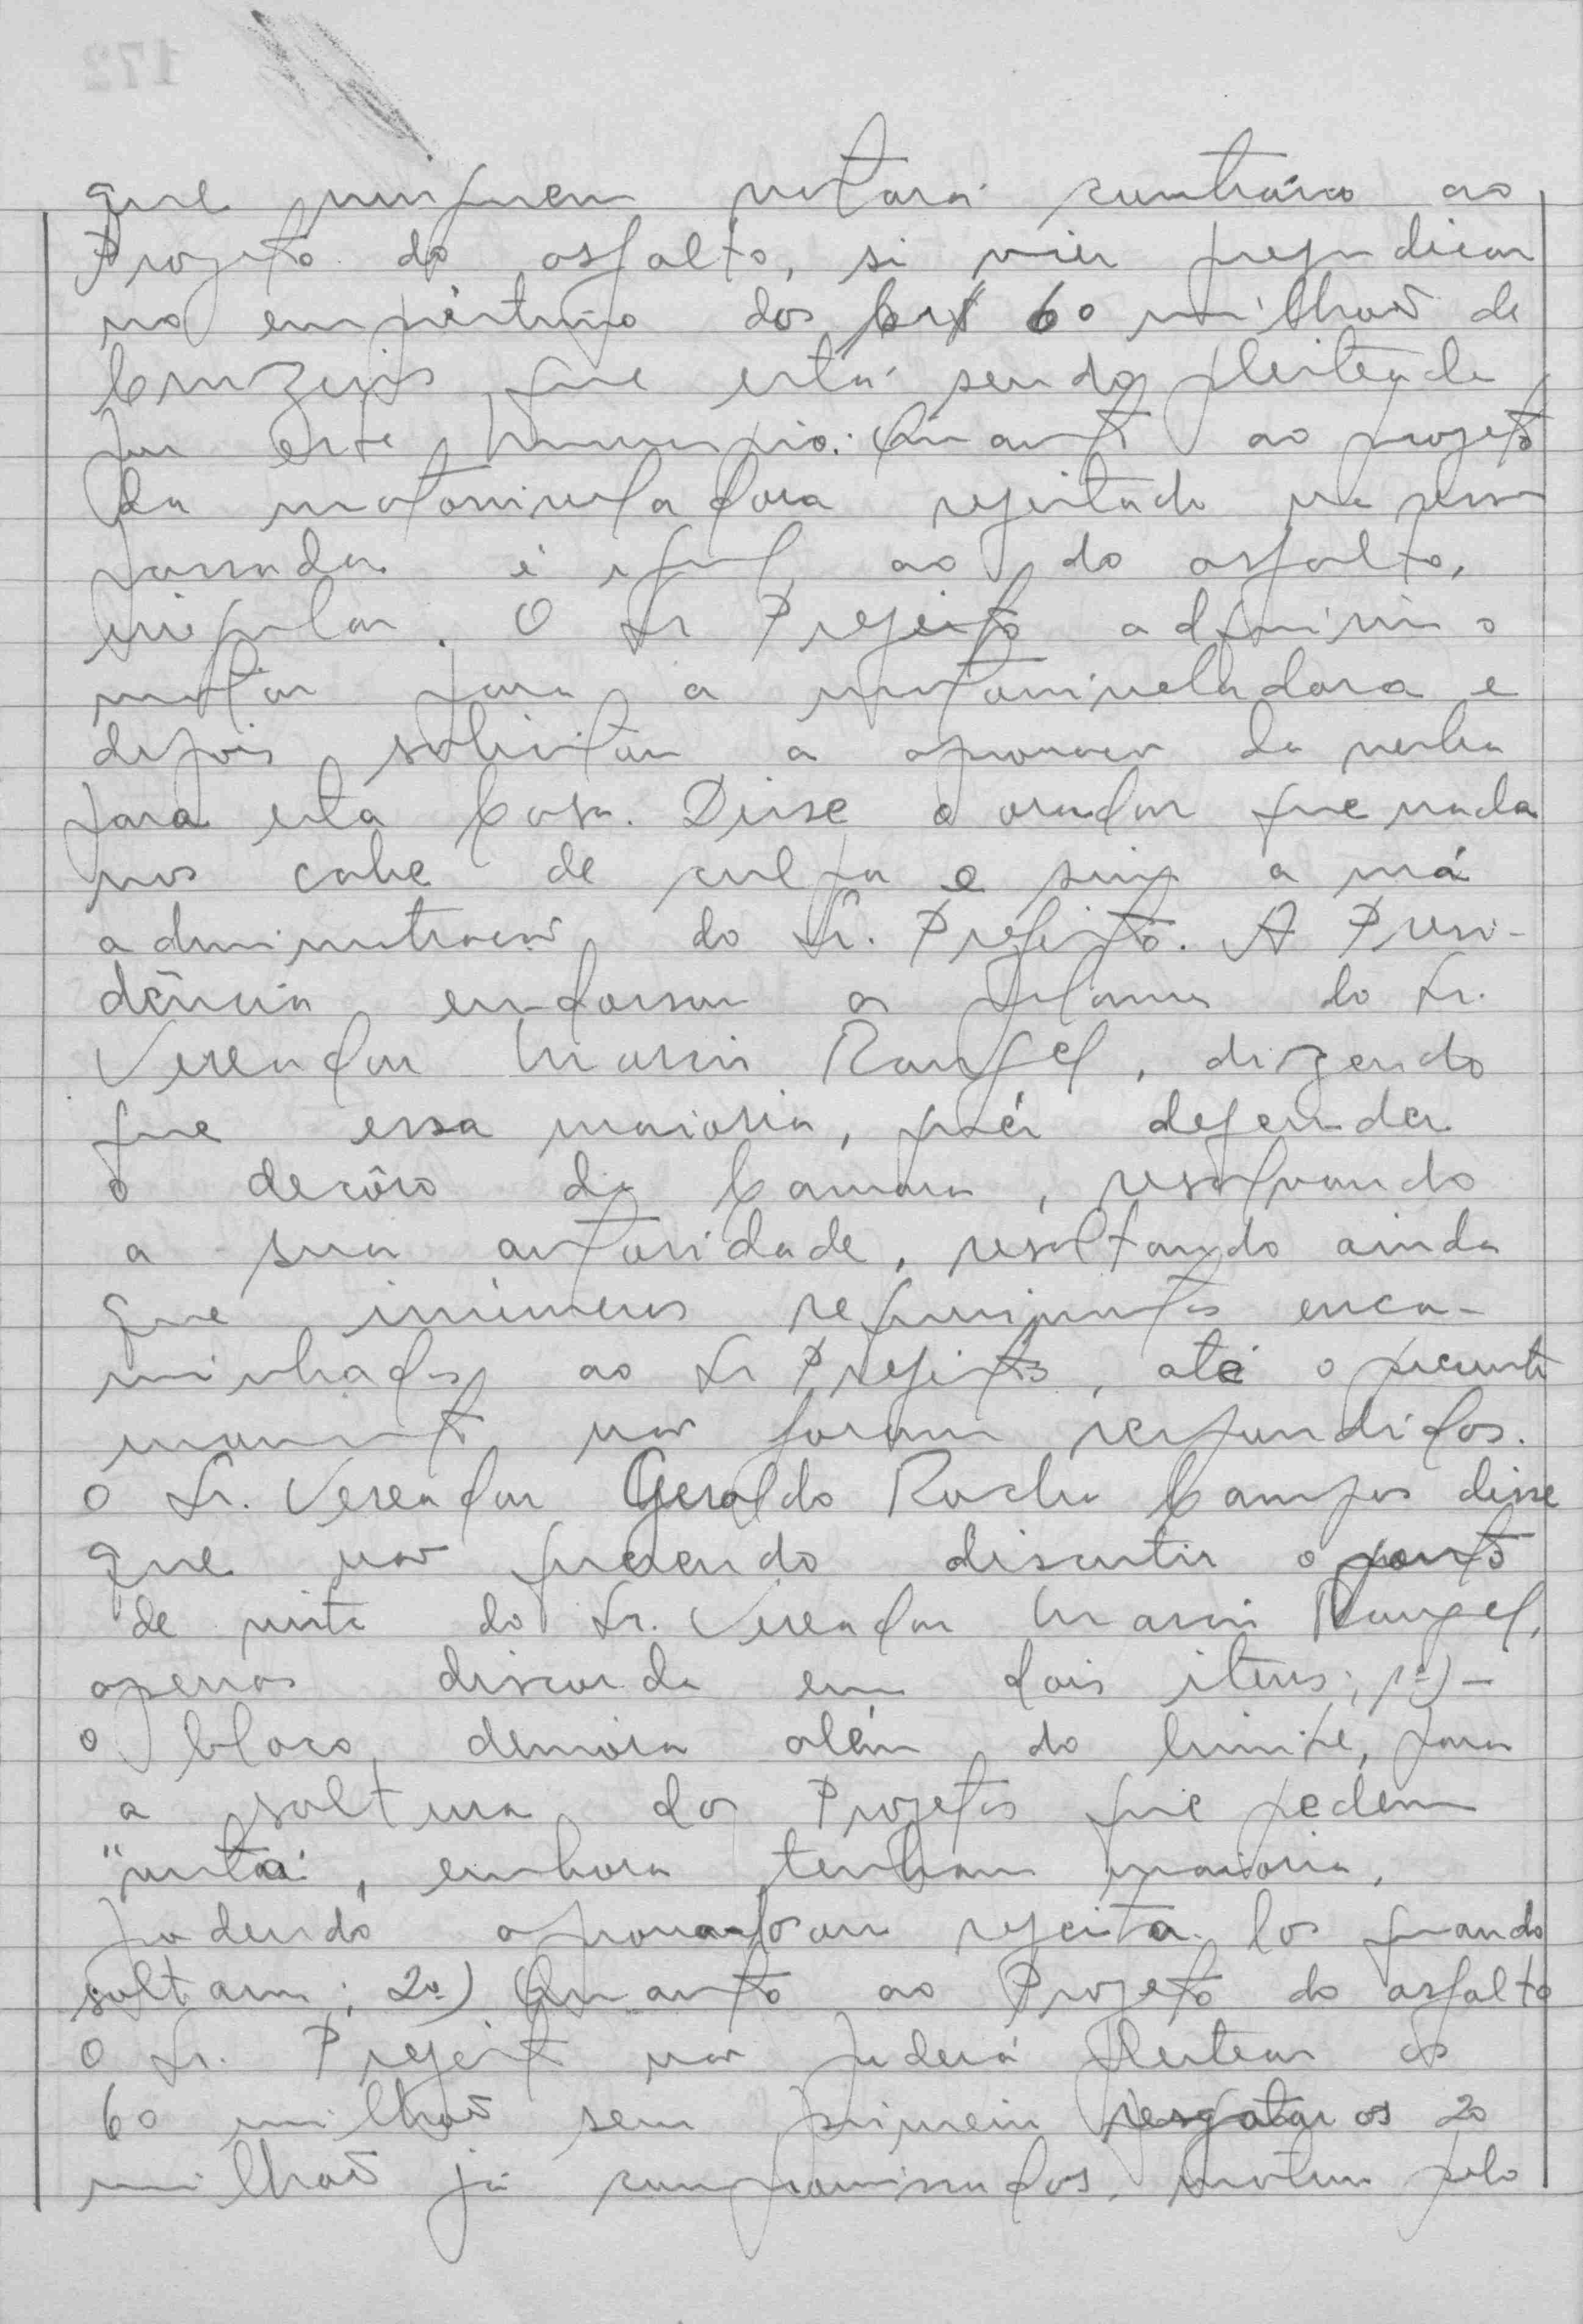 que ninguem votará contrário ao
Projeto do asfalto, si vier prejudicar
no empréstimo dos 60 milhoẽs de
Cruzeiros que está sendo pleiteado
por este Municipio. Quanto ao projeto
da motoniveladora rejeitado na
passada é igual ao do asfalto,
irregular. O Sr Prefeito adquiriu o
motor para a motoniveladora e
depois solicitou a aprovaçao da verba
para esta Casa. Disse o orador que nada
nos cabe de culpa e sim a má
administraçaõ do Sr. Prefeito. A Presi-
dência endossou a do Sr.
Vereador Marin Rangel, dizendo
que essa maioria, quér defender
o decôro da Camara, resalvando
a sua autoridade, resaltando ainda
que inúmeros requerimentos enca-
minhados ao Sr Prefeito, até o presente
momento nao foram respondidos.
O Sr. Vereador Geraldo Rocha Campos disse
que nao querendo discutir o ponto
de vista do Sr. Vereador Marin Rangel,
apenas discorda em dois itens; 1º) -
o bloco demora além do limite, para
a soltura dos Projetos que pedem
"vista", embora tenham maioria,
podendo aprova-los ou rejeita-los quando
soltarem; 2º) Quanto ao Projeto do asfalto
O Sr. Prefeito nao poderá pleitear os
60 milhoẽs sem primeiro resgatar os 20
milhoẽs já compromissados, motivo pelo